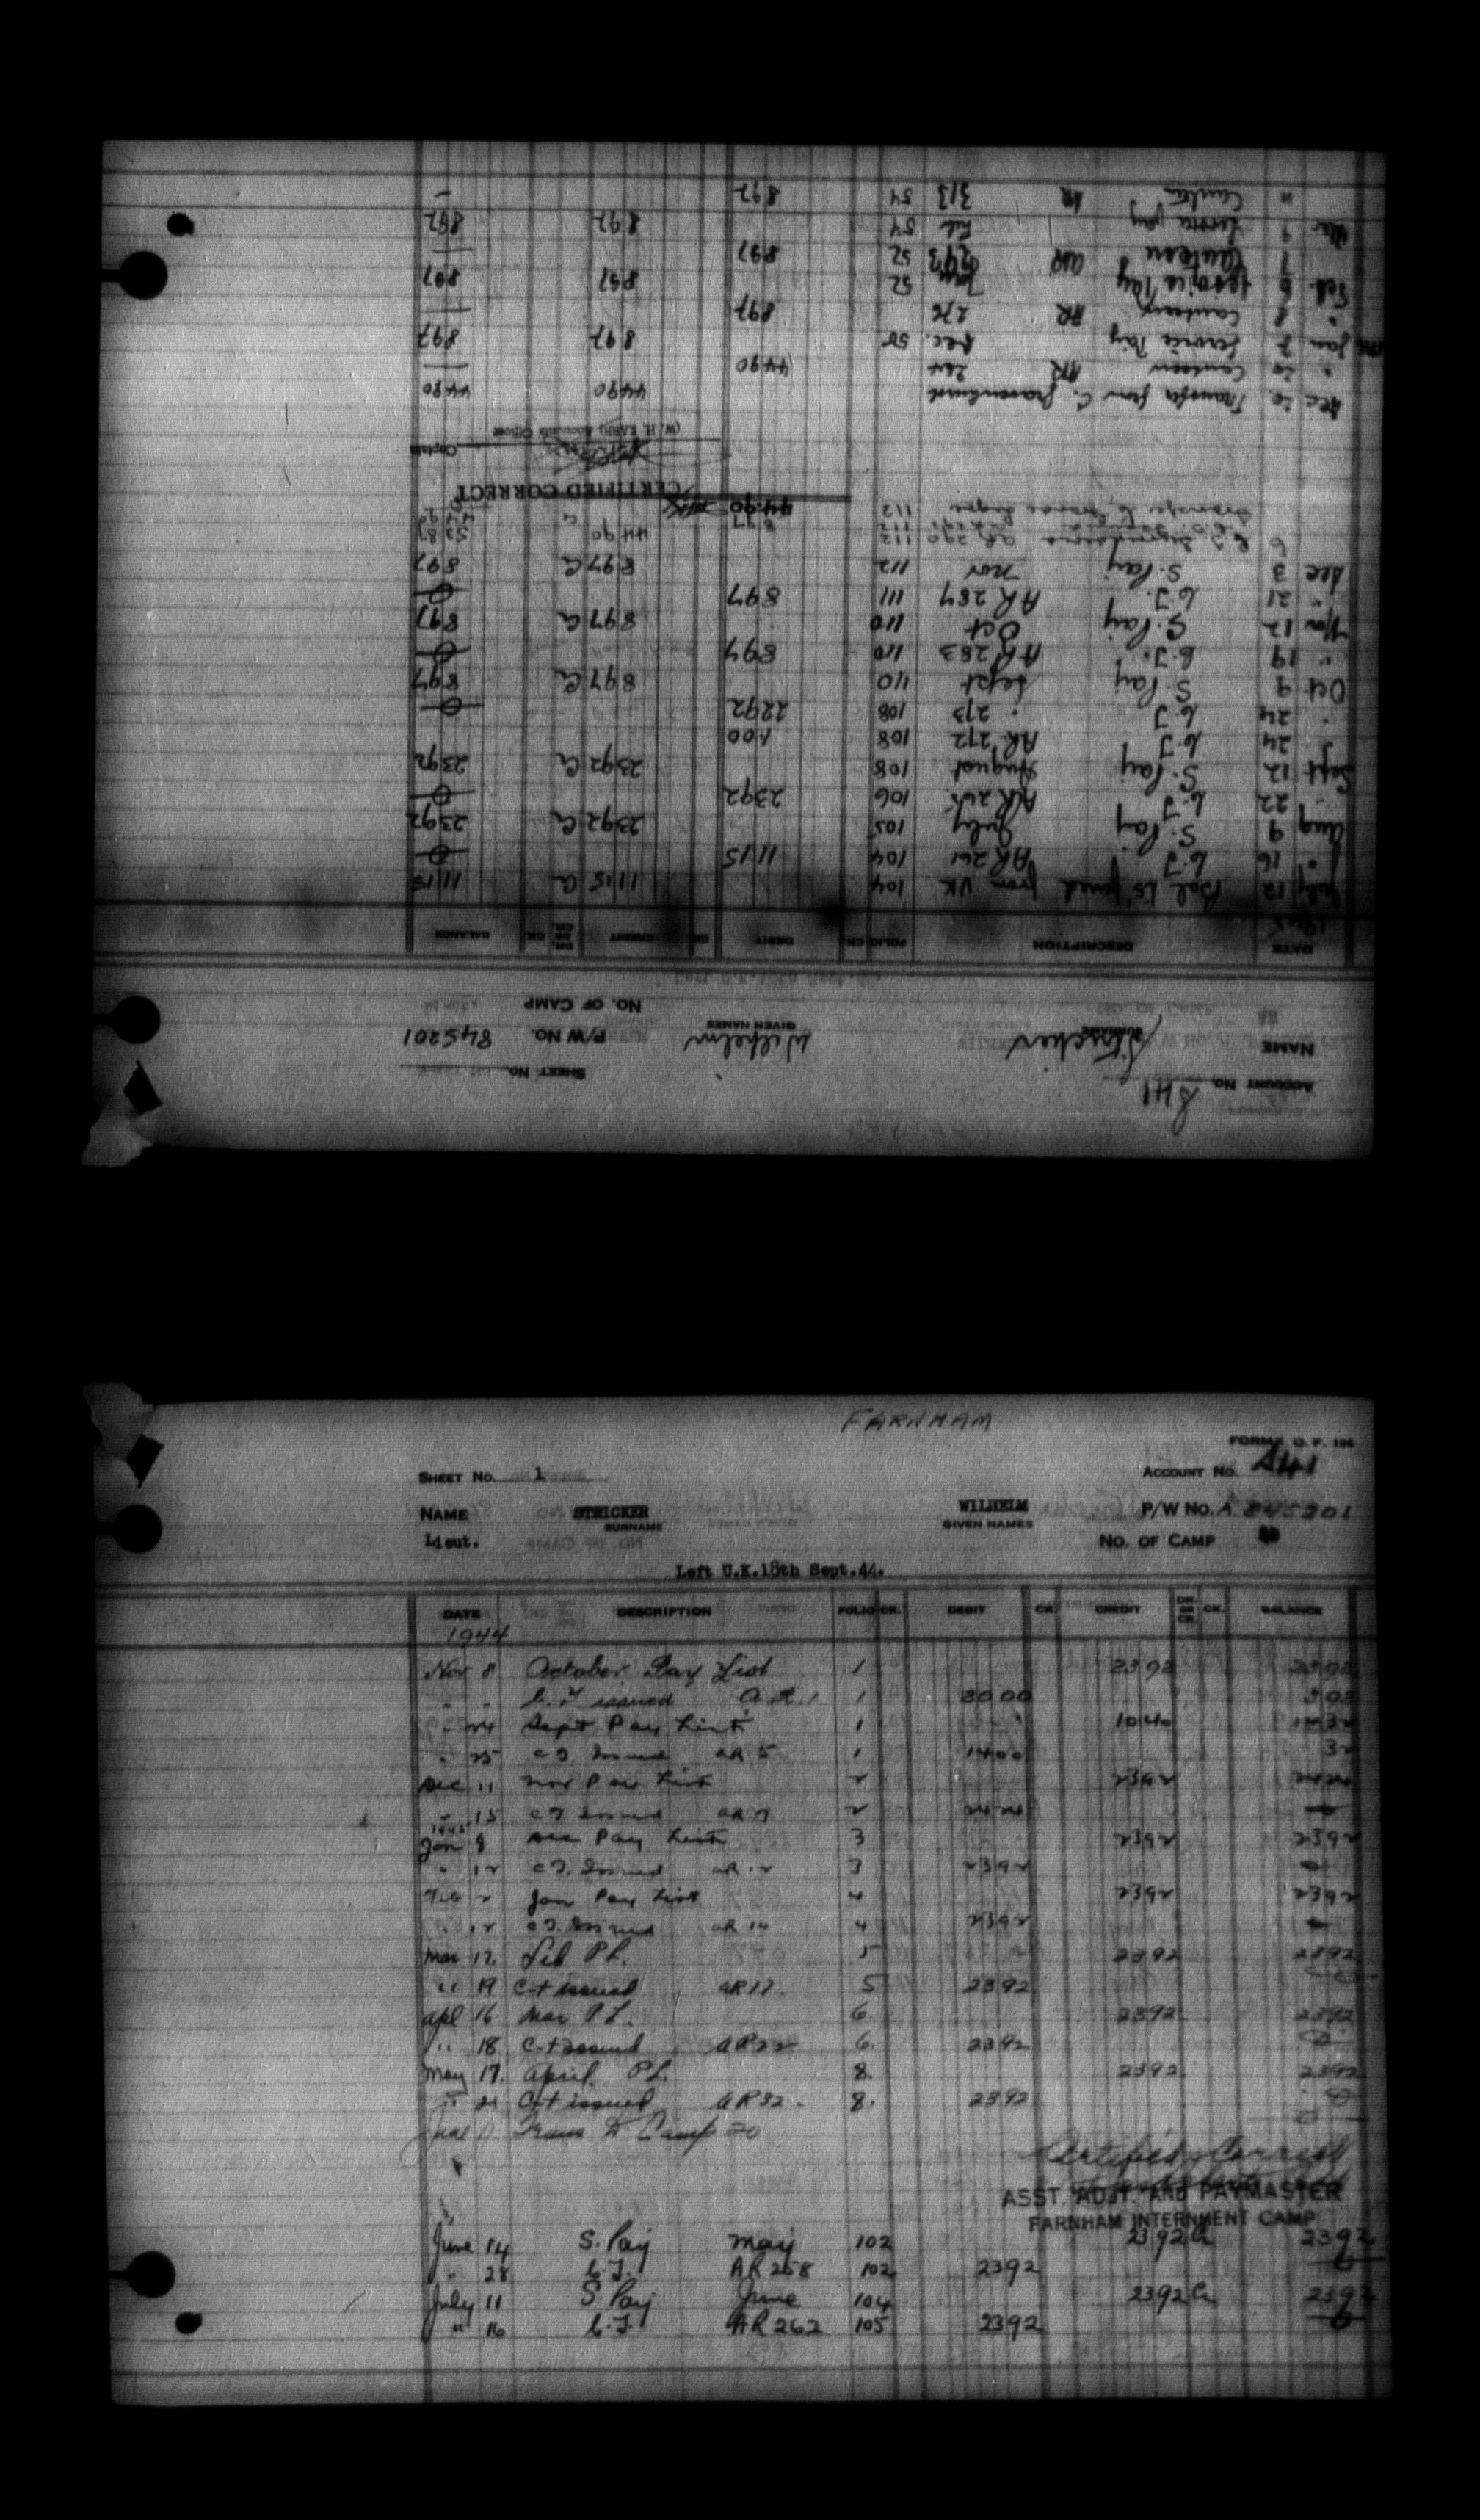 FARNHAM
FORM P. O. F. 106
SHEET NO. 1 ACCOUNT NO. S41
NAME STRICKER WILHELM P/W NO. A 845201
SURNAME GIVEN NAMES
Lieut. NO. OF CAMP
Left U.K. 18th Sept. 44.
DATE DESCRIPTION FOLIO CK. DEBIT CK. CREDIT DR. OR CR. CK. BALANCE
1944
Nov 8 October Pay List 1 2392 2392
" " C.T issued A.R. 1 1 2000 392
" 24 Sept Pay List 1 1040 1432
" 25 C T. Issued AR 5 1 1400 32
Dec 11 Nov Pay List 2 2392 2424
" 15 C T Issued AR 7 2 2424
1945
Jan 8 Dec Pay List 3 2392 2392
" 12 C T. Issued AR 12 3 2392
Feb 2 Jan Pay List 4 2392 2392
" 12 C T. Issued AR 14 4 2392
Mar 12 Feb P L. 5 2392 2392
" 19 C-t issued AR 17. 5 2392 0
Apl 16 Mar P L. 6. 2392 2392
" 18 C-t issued AR 22 6. 2392 0
May 17. April P L. 8. 2392 2392
" 21 C-t issued AR 32. 8. 2392 0
June Trans to Camp 20
Certified Correct
ASST. ADJT. AND PAYMASTER
FARNHAM INTERNMENT CAMP
June 14 S. Pay May 102 2392 Cr 2392
" 28 C.T. AR 258 102 2392 0
July 11 S Pay June 104 2392 Cr 2392
" 16 C.T. AR 262 105 2392 0
ACCOUNT NO. S41 SHEET NO.
NAME Stricker Wilhelm P/W NO. 845201
SURNAME GIVEN NAMES
NO. OF CAMP
DATE DESCRIPTION FOLIO CK. DEBIT CK. CREDIT DR. OR CR. CK. BALANCE
1945
July 12 Bal from UK 104 1115 Cr 1115
" 16 C.T AR 261 104 1115 0
Aug 9 S. Pay July 105 2392 Cr 2392
" 22 C.T AR 265 106 2392 0
Sept 12 S. Pay August 108 2392 Cr 2392
" 24 C.T AR 272 108 100
" 24 C.T " 273 108 2292 0
Oct 9 S. Pay Sept 110 897 Cr 897
" 19 C.T. AR 283 110 897 0
Nov 12 S. Pay Oct 110 897 Cr 897
" 21 C.T. AR 287 111 897 0
Dec 3 S. Pay Nov 112 897 Cr 897
6 AR 290 112 4490 5387
112 897 4490
Transfer to 112 4490
CERTIFIED CORRECT
Captain
(W. H. EARL) Accounts Officer
Dec 20 Transfer from C. Gravenhurst 4490 4490
" 20 Canteen AR 264 4490
Jan 7 Service Pay Dec. 50 897 897
" 8 Canteen AR 276 897
Feb 6 Service Pay Jan 52 897 897
" 7 Canteen AR 293 52 897
Mar 9 Service Pay Feb 54 892 892
" Canteen AR 313 54 892 —